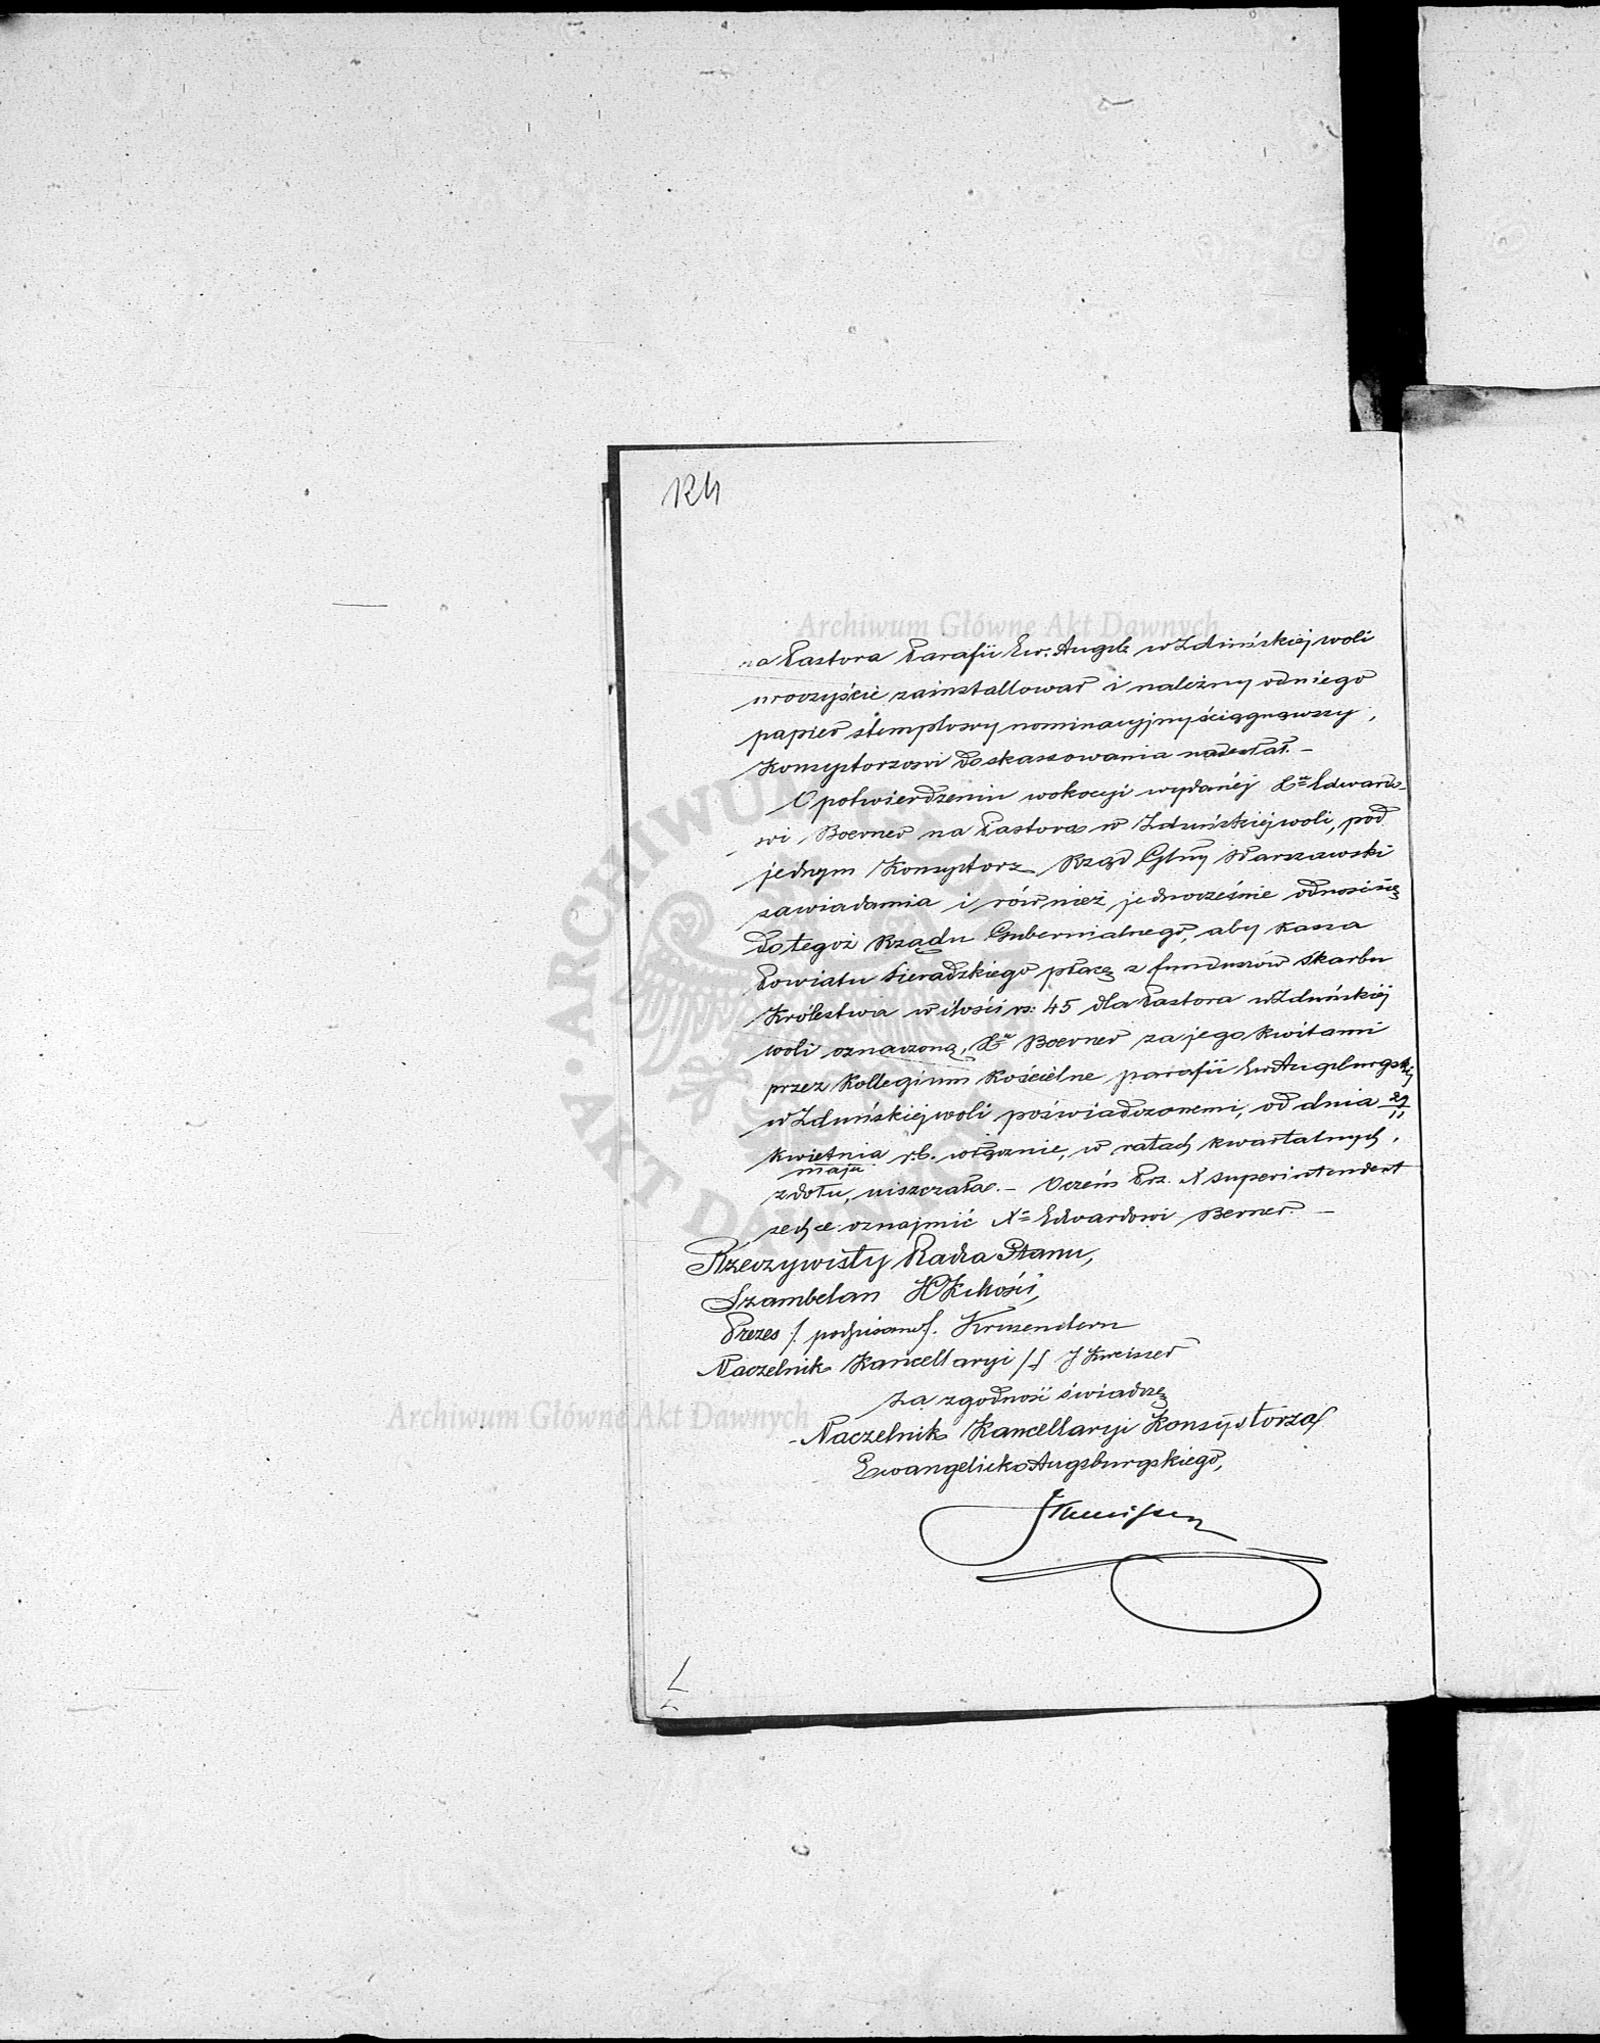 124
Archiwum Główne Akt Dawnych
na Pastora Parafii Ew. Augsb w Zduńskiej woli
uroczyście zainstallował i należny od niego
papier stemplowy nominacyjny ściągnąwszy,
Konsystorzowi do skassowania nadesłał. –
O potwierdzeniu wokacyi wydanéj Xu Edwardo-
wi Boerner na Pastora w Zduńskiej woli, pod
jednym Konsystorz Rząd Glny Warszawski
zawiadamia i również jednocześnie odnosi się
do tegoż Rządu Gubernialnego, aby kassa
Powiatu Sieradzkiego płacę z funduszów skarbu
Królestwa w ilości rs: 45 dla Pastora w Zduńskiéj
woli oznaczoną, Xu Boerner za jego kwitami
przez Kollegium Kościelne parafii Ew Augsburgskiej
w Zduńskiej woli poświadczonemi, od dnia 29/11
kwietnia/maja r.b. włącznie, w ratach kwartalnych,
z dołu, uiszczała. – Oczém Prz. X superintendent
zechce oznajmić X Edwardowi Berner. –
Rzeczywisty Radca Stanu,
Szambelan JKMości,
Prezes /. podpisano /. Krusendern
Naczelnik Kancellaryi /./ J
Za zgodność świadczę
Archiwum Główne Akt Dawnych
Naczelnik Kancellaryi Konsystorza
Ewangelicko Augsburgskiego,
ARCHIWUM GŁÓWNE AKT DAWNYCH